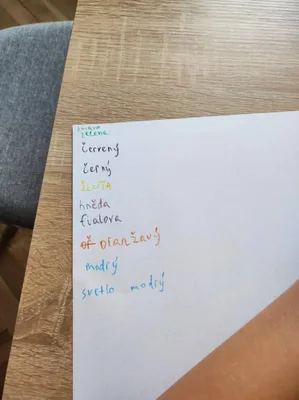 zelena
červený
černý
žlutá
hněda
fialova
oranžavý
modrý
svetlo modrý